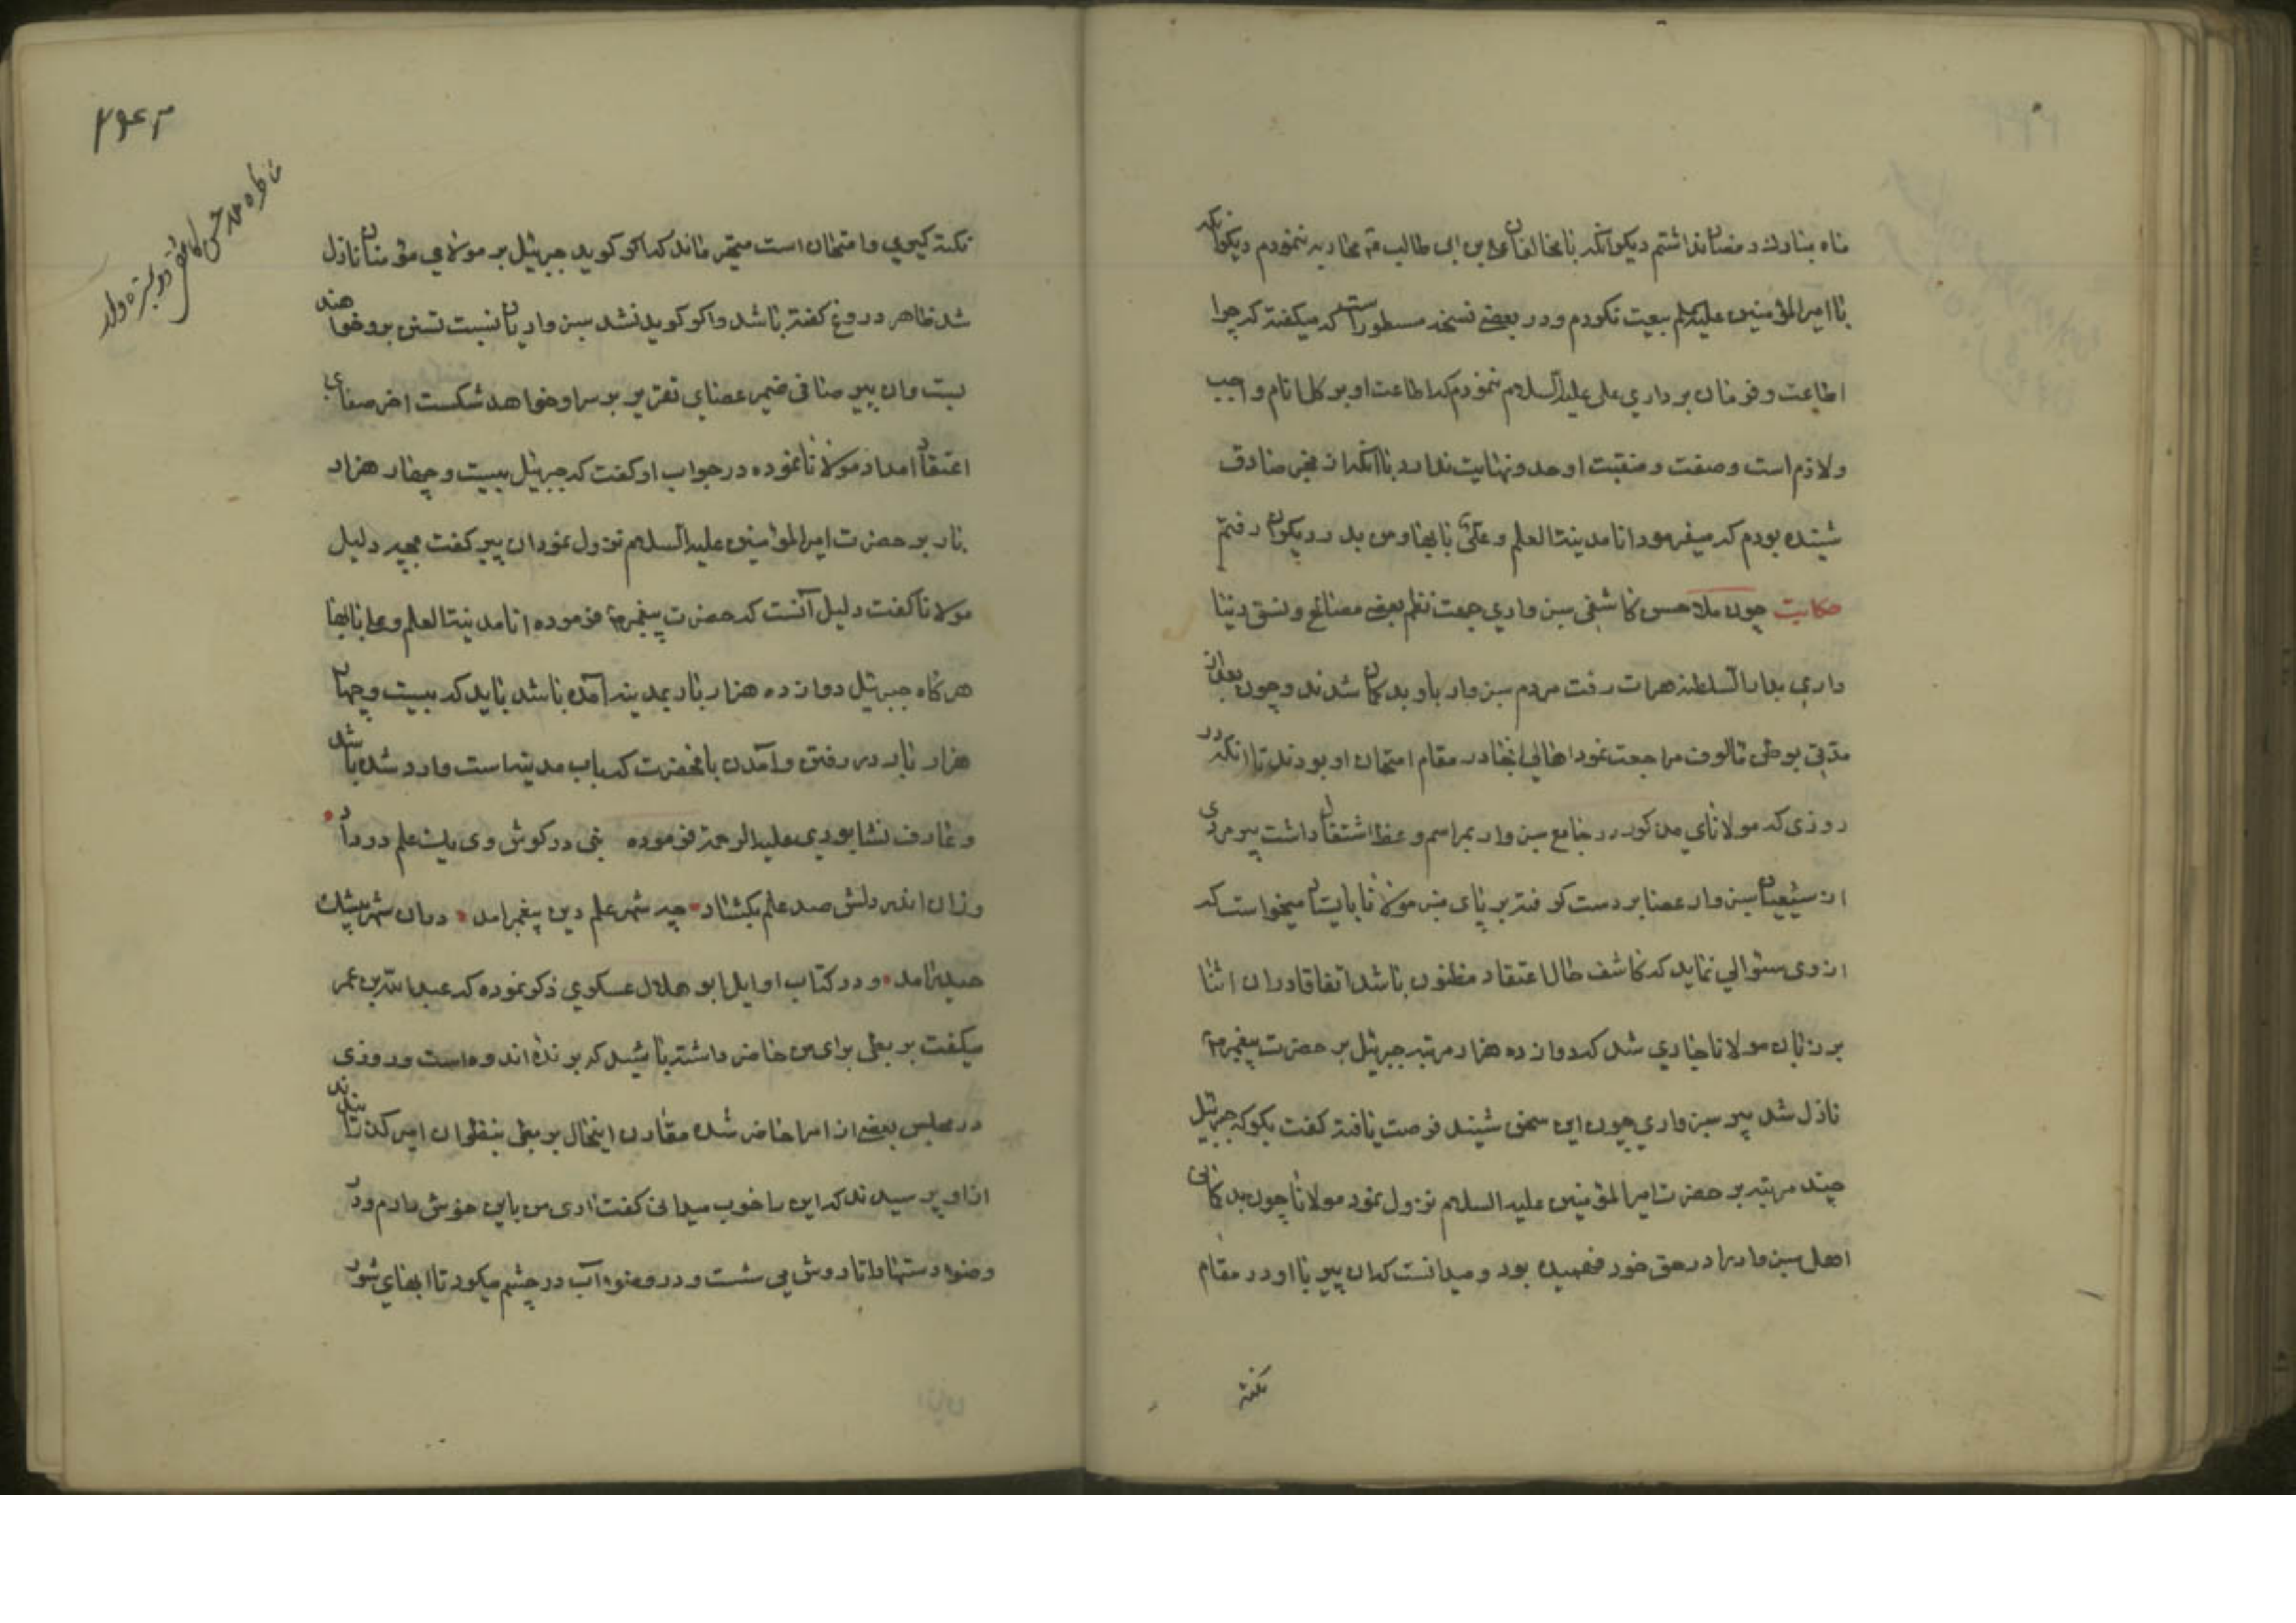 ماه مبارك رمضان نداشتم ديكر آنكه با مخالفان علي بن ابي طالب ع محاربه ننمودم ديكر آنكه
با امير المؤمنين عليه السلم بيعت نكردم و در بعضي نسخه مسطور است كه ميكفته كه چرا
اطاعت و فرمان برداري علي عليه السلام ننمودم كه اطاعت او بر كل انام واجب
ولازم است و صفت و منقبت او حد و نهايت ندارد با آنكه از مخبر صادق
شينده بودم كه ميفرمود انا مدينة العلم و علي بابها و من بدر ديكران رفتم
حكايت چون ملا حسن كاشفي سبزواري جهت نظم بعضي مصالح و نسق دنيا
داري بدار السلطنه هرات رفت مردم سبزوار باو بد كمان شدند و چون بعد از
مدتي بوطن مالوف مراجعت نمود اهالي انجا در مقام امتحان او بودند تا انكه در
روزى كه مولاناي مذكور در جامع سبزوار بمراسم وعظ اشتغال داشت پير مردى
از شيعيان سبزوار عصا بر دست كرفته بر پاى منبر مولانا بايستاد ميخواست كه
از وى سئوالي نمايد كه كاشف حال اعتقاد مظنون باشد اتفاقا دران اثنا
بر زبان مولانا جاري شد كه دوازده هزار مرتبه جبرئيل بر حضرت پيغمبر ص
نازل شد پير سبزواري چون اين سخن شيند فرصت يافته كفت بكو كه جبرئيل
چند مرتبه بر حضرت امير المؤمنين عليه السلام نزول نمود مولانا چون بد كماني
اهل سبزوار را در حق خود فهميده بود و ميدانست كه ان پير با او در مقام
نكته
۲۴۳
نكته كيري و امتحان است متحير ماند كه اكر كويد جبرئيل بر مولاي مؤمنان نازل
شد ظاهر دروغ كفته باشد و اكر كويد نشد سبزواريان نسبت تسنن برو خواهند
بست وان پير صافى ضمير عصاي تعزير بر سر او خواهد شكست اخر صفاي
اعتقاد امداد مولانا نموده در جواب او كفت كه جبرئيل بيست و چهار هزار
بار بر حضرت امير المؤمنين عليه السلام نزول نمود ان پير كفت بچه دليل
مولانا كفت دليل آنست كه حضرت پيغمبر ص فرموده انا مدينة العلم و علي بابها
هركاه جبرئيل دوازده هزار بار بمدينه آمده باشد بايد كه بيست و چهار
هزار بار در رفتن و آمدن بانحضرت كه باب مدينه است وارد شده باشد
و عارف نشابوري عليه الرحمة فرموده نبى در كوش وى يك علم در داد
وزان اندر دلش صد علم بكشاد چه شهر علم دين پيغمبر امد در ان شهر بيشك
حيدر امد و در كتاب اوايل ابو هلال عسكري ذكر نموده كه عبد الله بن عمر
ميكفت بربطي براى من حاضر داشته باشيد كه برنده اندوه است و روزى
در مجلس بعضي از امرا حاضر شده مقارن اينحال بربطي بنظر ان امير كذرانيدند
از او پرسيدند كه اين را خوب ميدانى كفت ارى من باين خوش دارم و در
وضوء دستها را تا دوش مي شست و در وضوء آب در چشم ميكرد تا ابهاي شور